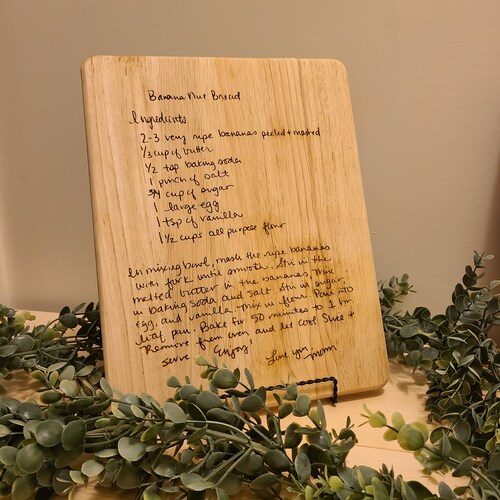 Banana Nut Bread
Ingredients
2-3 very ripe bananas peeled + mashed
1/3 cup of butter
1/2 tsp baking soda
1 pinch of salt
3/4 cup of sugar
1 large egg
1 tsp of vanilla
1 1/2 cups all purpose flour
In mixing bowl, mash the ripe bananas
with fork until smooth. Stir in the
melted butter in the bananas. Mix
in baking soda and salt. Stir in sugar,
egg, and vanilla. Mix in flour. Pour into
loaf pan. Bake for 50 minutes to 1 hr.
Remove from oven and let cool. Slice +
serve. Enjoy
Love you
mom